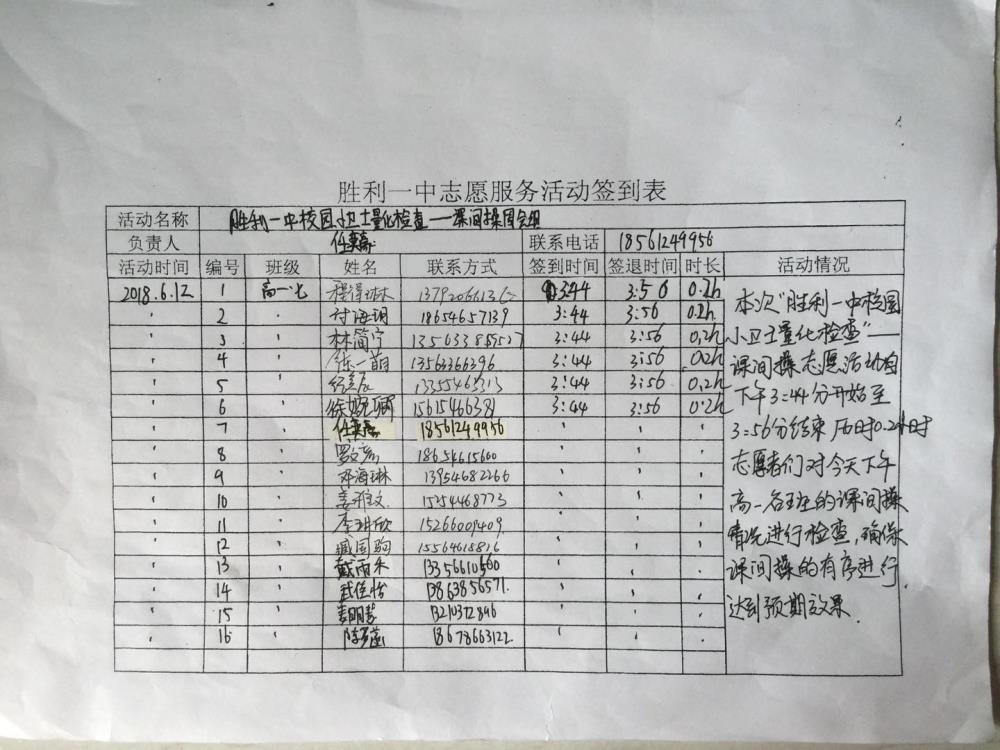 胜利一中志愿服务活动签到表
活动名称 胜利一中校园小卫士量化检查——课间操
负责人 任 联系电话 18561249956
活动时间 编号 班级 姓名 联系方式 签到时间 签退时间 时长 活动情况
2018.6.12 1 高一七 程 琳 3:44 3:56 0.2h
2 海 18654657139 3:44 3:56 0.2h
3 林简宁 3:44 3:56 0.2h
4 一萌 13563366396 3:44 3:56 0.2h
5 3:44 3:56 0.2h
6 徐 15615466381 3:44 3:56 0.2h
7 任 18561249956
8 罗文 18654615600
9 邓海琳 13954682266
10 姜雅文 15254468773
11 李 欣 15266001409
12 臧国 15564615816
13 戴雨禾 13356610560
14 武佳怡 13863856571
15 13210372896
16 陈 18678663122
本次“胜利一中校园
小卫士量化检查”——
课间操志愿活动自
下午3:44分开始至
3:56分结束 历时0.2小时
志愿者们对今天下午
高一各班的课间操
情况进行检查,确保
课间操的有序进行,
达到预期效果.